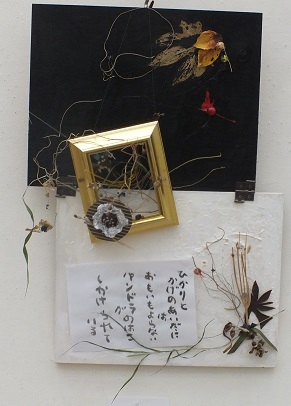 ひかりと
かげのあいだに
は
おもいもよらない
パンドラのはこ
が
しかけられて
いる